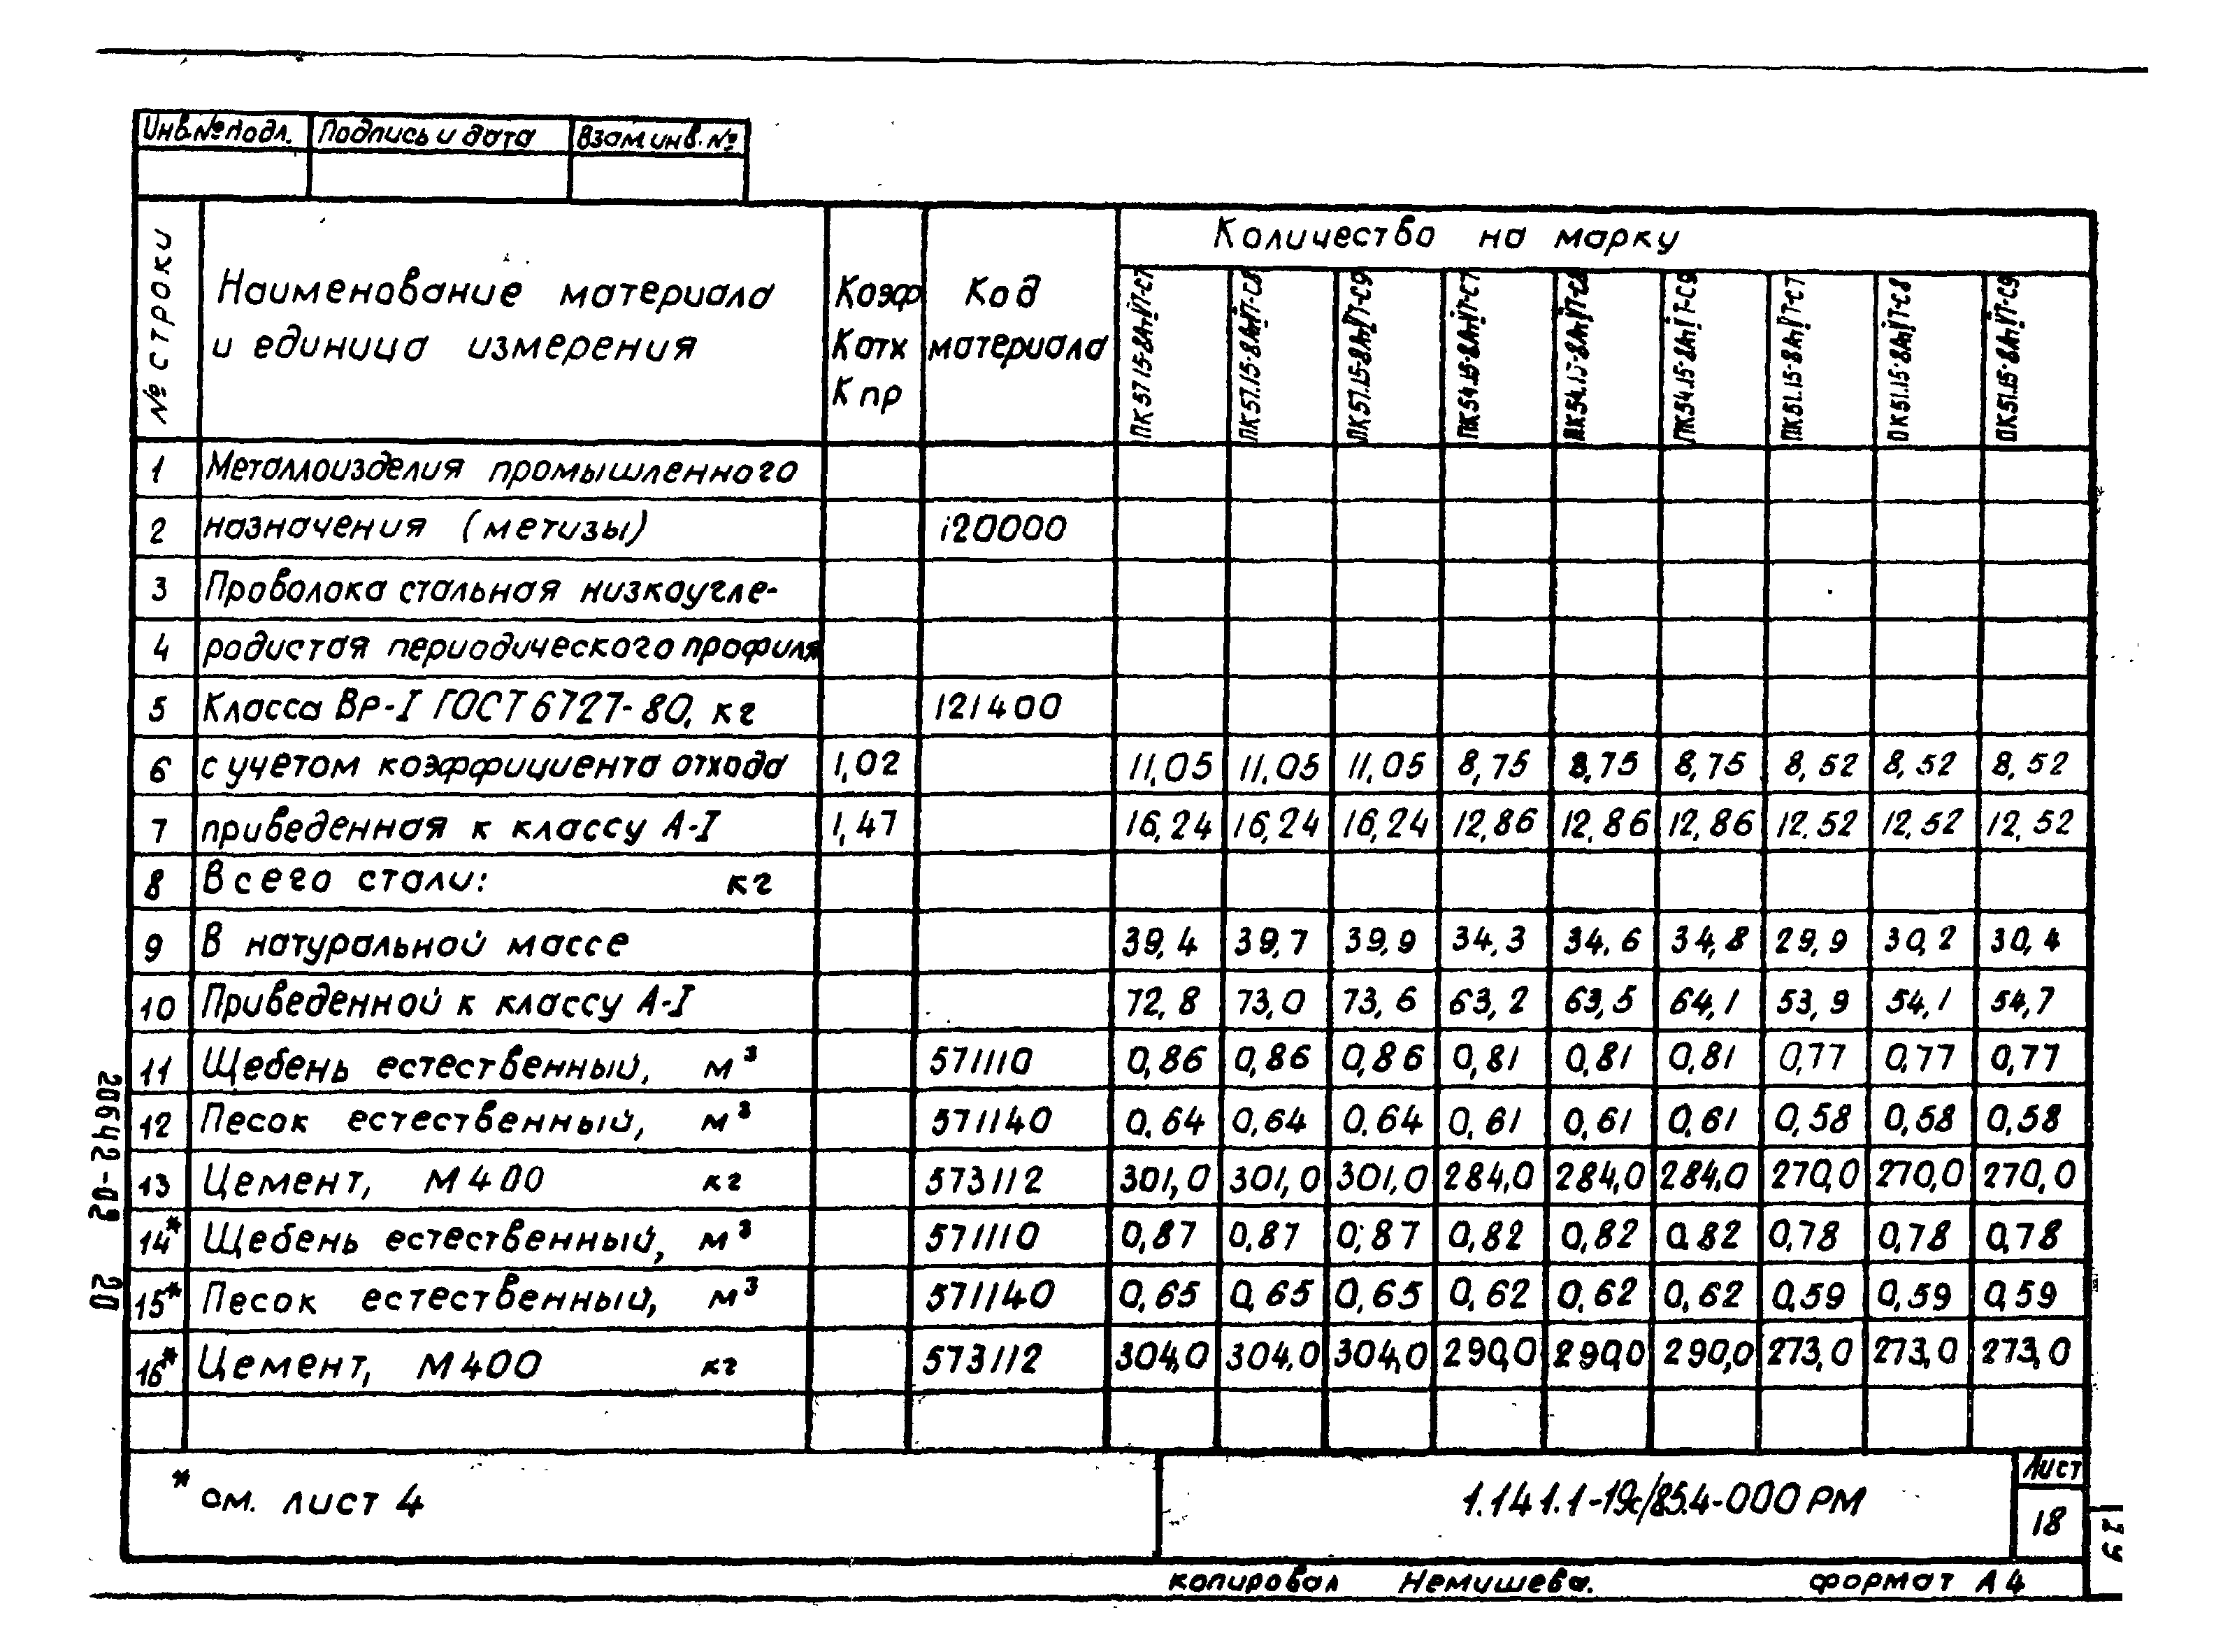 Инв.№ подл. Подпись и дата Взам инв. №
№ строки
Наименование материала
и единица измерения
Коэф
Котх
Кпр
Код
материала
Количество на марку
1 Металлоизделия промышленного
2 назначения (метизы) 120000
3 Проволока стальная низкоугле-
4 родистая периодического профиля
5 Класса Вр-I ГОСТ 6727-80, кг 121400
6 с учетом коэффициента отхода 1,02 11,05 11,05 11,05 8,75 8,75 8,75 8,52 8,52 8,52
7 приведенная к классу А-I 1,47 16,24 16,24 16,24 12,86 12,86 12,86 12,52 12,52 12,52
8 Всего стали: кг
9 В натуральной массе 39,4 39,7 39,9 34,3 34,6 34,8 29,9 30,2 30,4
10 Приведенной к классу А-I 72,8 73,0 73,6 63,2 63,5 64,1 53,9 54,1 54,7
11 Щебень естественный, м³ 571110 0,86 0,86 0,86 0,81 0,81 0,81 0,77 0,77 0,77
12 Песок естественный, м³ 571140 0,64 0,64 0,64 0,61 0,61 0,61 0,58 0,58 0,58
13 Цемент, М400 кг 573112 301,0 301,0 301,0 284,0 284,0 284,0 270,0 270,0 270,0
14* Щебень естественный, м³ 571110 0,87 0,87 0,87 0,82 0,82 0,82 0,78 0,78 0,78
15* Песок естественный, м³ 571140 0,65 0,65 0,65 0,62 0,62 0,62 0,59 0,59 0,59
16* Цемент, М400 кг 573112 304,0 304,0 304,0 290,0 290,0 290,0 273,0 273,0 273,0
* см. лист 4
1.141.1-19с/85.4-000 РМ
Лист
18
19
копировал Немишева. формат А4
20642-02 20